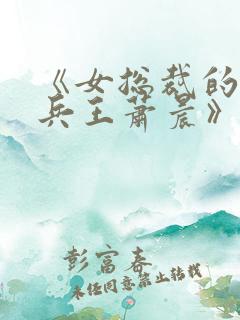 《女总裁的
兵王萧晨》
彭富春
未经同意禁止转载